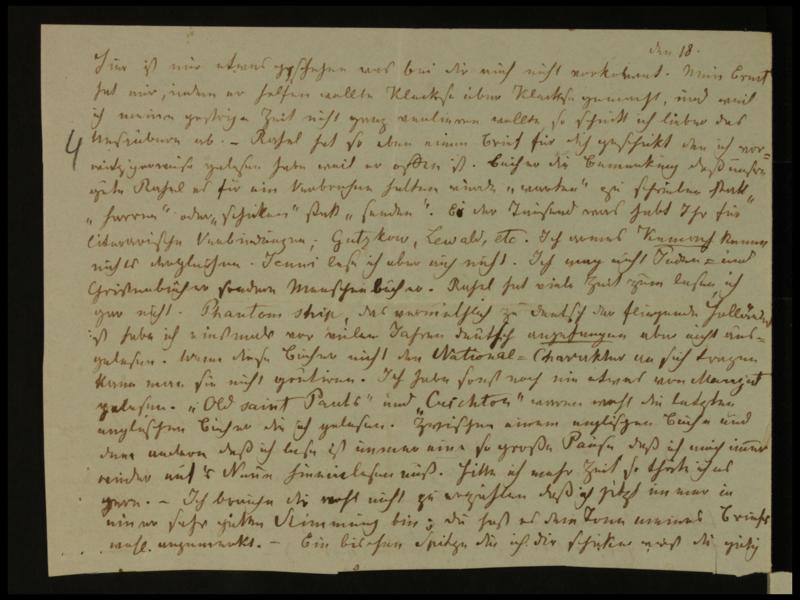 den 18.
Hier ist mir etwas geschehen was bei dir auch nicht vorkommt. Mein Ernst
hat mir, indem er helfen wollte Kleckse über Kleckse gemacht, und weil
ich meine gestrige Zeit nicht ganz verlieren wollte so schick ich lieber das
ab. – Rahel hat so eben einen Brief für dich geschickt den ich vor=
gelesen habe weil er offen ist. die Bemerkung daß unsre
gute Rahel es für ein Verbrechen halten würde „warten" zu schreiben statt
„harren" oder „schicken" statt „senden". Ei der Tausend was habt Ihr für
literarische Verbindungen; Gutzkow, Lewald, etc. Ich armes kenne
nichts dergleichen. Jenni lese ich aber auch nicht. Ich mag nicht Juden= und
Christenbücher sondern Menschenbücher. Rahel hat viele Zeit zum lesen, ich
gar nicht. Phantom ship, das vermuthlich zu deutsch der fliegende Holländer
ist habe ich einstmals vor vielen Jahren deutsch angefangen aber nicht aus=
gelesen. Wenn diese Bücher nicht den National=Charakter an sich tragen
kann man sie nicht goutiren. Ich habe sonst noch nie etwas von
gelesen. „Old saint Pauls" und „Crichton" waren wohl die letzten
englischen Bücher die ich gelesen. Zwischen einem englischen Buche und
dem andern daß ich lese ist immer eine so große Pause daß ich mich immer
wieder auf's Neue hineinlesen muß. Hätte ich mehr Zeit so thäte ich es
gern. – Ich brauche dir wohl nicht zu erzählen daß ich jetzt immer in
einer sehr guten Stimmung bin; du hast es dem Tone meines Briefes
wohl angemerkt. – Ein bischen Spitze die ich dir schicke wirst du gütig
4